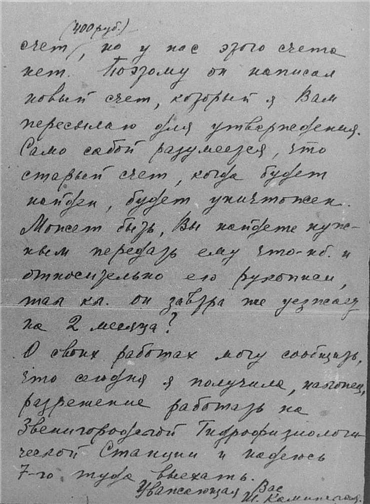 (400 руб.)
счет, но у нас этого счета
нет. Поэтому он написал
новый счет, который я Вам
пересылаю для утверждения.
Само собой разумеется, что
старый счет, когда будет
найден, будет уничтожен.
Может быть, Вы найдете нуж-
ным передать ему что-нб. и
относительно его рукописи,
так кк. он завтра же уезжает
на 2 месяца?
О своих работах могу сообщить,
что сегодня я получила, наконец,
разрешение работать на
Звенигородской Гидрофизиологи-
ческой Станции и надеюсь
7-го туда выехать.
Уважающая Вас